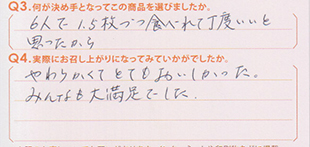 Q3.何が決め手となってこの商品を選びましたか。
6人で1.5枚づつ食べれて丁度いいと
思ったから
Q4.実際にお召し上がりになってみていかがでしたか。
やわらかくてとてもおいしかった。
みんなも大満足でした.